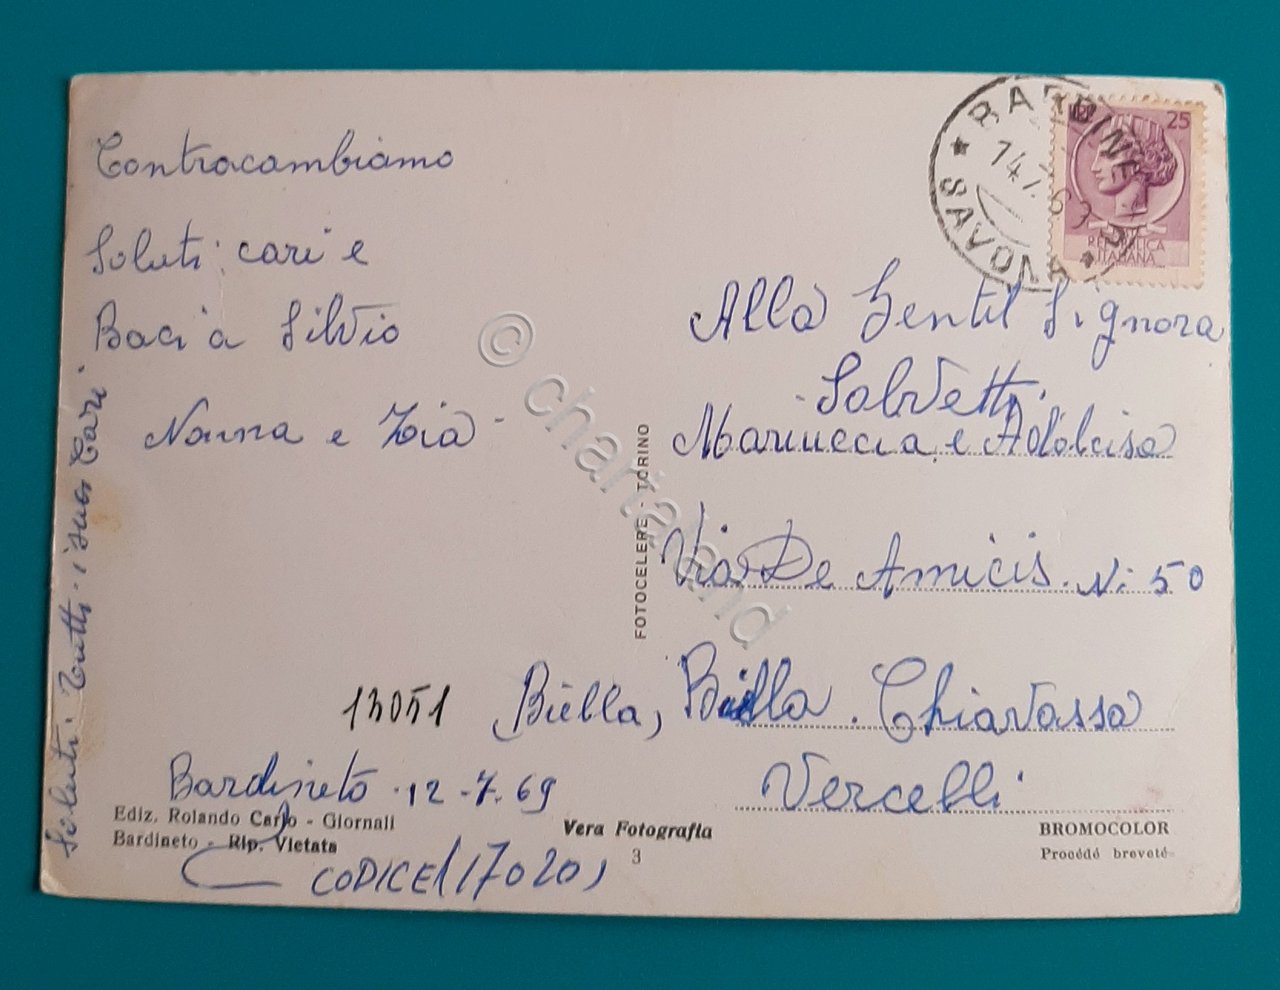 Contracambiamo
Saluti cari e
Baci a Silvio
Nonna e Zia
Saluti. Tutti i suoi Cari
BARDINETO
14.7.69
SAVONA
25
REPUBBLICA
ITALIANA
Alla Gentil Signora
Salvetti
Mariuccia e Adalcisa
Via De Amicis. N. 50
13051 Biella, Biella. Chiavassa
Vercelli
Bardineto 12-7-69
CODICE (17020)
Ediz. Rolando Carlo - Giornali
Bardineto - Rip. Vietata
Vera Fotografia
3
BROMOCOLOR
Procédé breveté
FOTOCELERE - TORINO
© chartaland